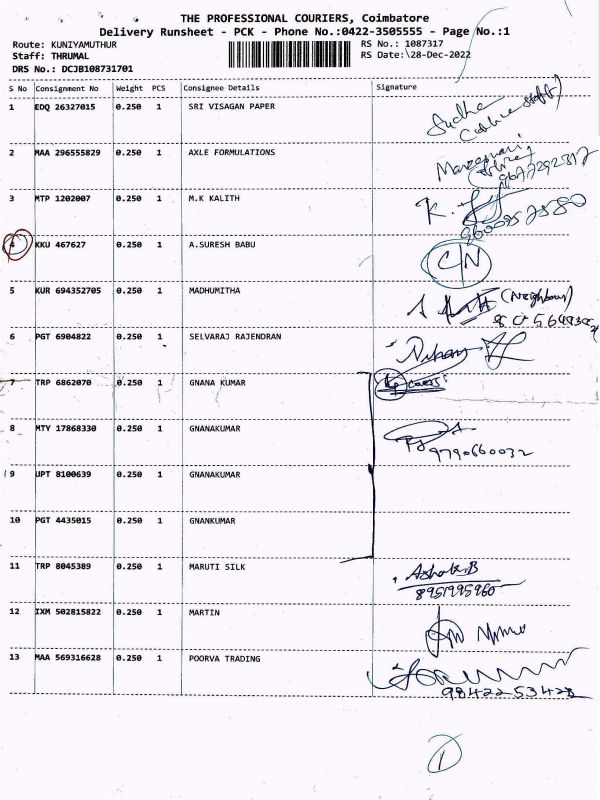 THE PROFESSIONAL COURIERS, Coimbatore
Delivery Runsheet - PCK - Phone No.:0422-3505555 - Page No.:1
Route: KUNIYAMUTHUR RS No.: 1087317
Staff: THRUMAL RS Date: 28-Dec-2022
DRS No.: DCJB108731701
S No Consignment No Weight PCS Consignee Details Signature
1 EDQ 26327015 0.250 1 SRI VISAGAN PAPER Sudha
2 MAA 296555829 0.250 1 AXLE FORMULATIONS
3 MTP 1202007 0.250 1 M.K KALITH K.
4 KKU 467627 0.250 1 A.SURESH BABU C/N
5 KUR 694352705 0.250 1 MADHUMITHA (Neighbour)
6 PGT 6904822 0.250 1 SELVARAJ RAJENDRAN
7 TRP 6862070 0.250 1 GNANA KUMAR
8 MTY 17868330 0.250 1 GNANAKUMAR
9790660032
9 JPT 8100639 0.250 1 GNANAKUMAR
10 PGT 4435015 0.250 1 GNANKUMAR
11 TRP 8045389 0.250 1 MARUTI SILK Ashok.B
8951995960
12 IXM 502815822 0.250 1 MARTIN
13 MAA 569316628 0.250 1 POORVA TRADING
9842253428
1